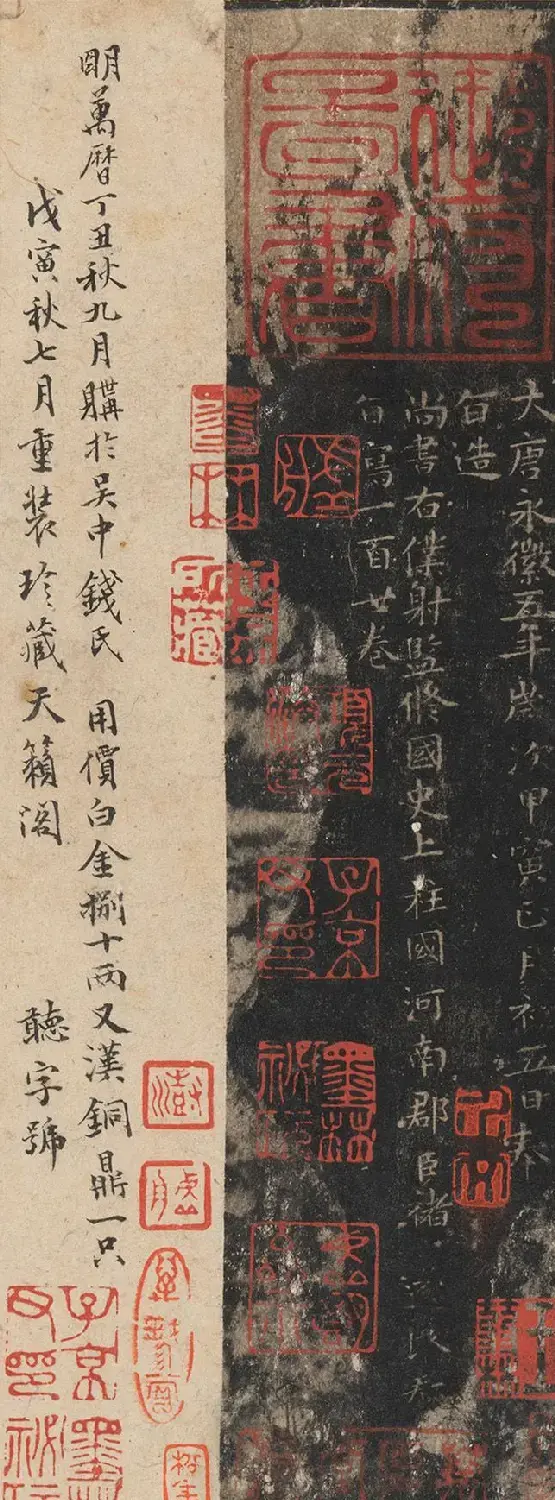 大唐永徽五年歲次甲寅已月初五日奉
旨造
尚書右僕射監修國史上柱國河南郡臣褚遂良奉
旨寫一百廿卷
子京父印
墨林秘玩
明萬曆丁丑秋九月購於吳中錢氏 用價白金捌十兩又漢銅鼎一只
戊寅秋七月重裝珍藏天籟閣 聽字號
子京父印